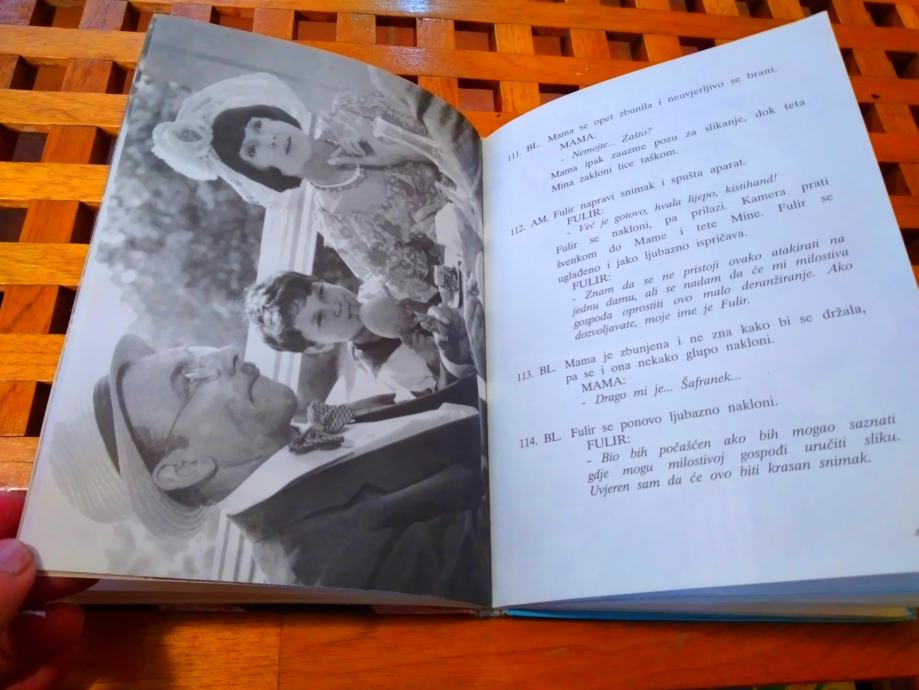 111. BL. Mama se opet zbunila i neuvjerljivo se brani.
MAMA:
- Nemojte... Zašto?
Mama ipak zauzme pozu za slikanje, dok teta
Mina zakloni lice taškom.
112. AM. Fulir napravi snimak i spušta aparat.
FULIR:
- Već je gotovo, hvala lijepo, kistihand!
Fulir se nakloni, pa prilazi. Kamera prati
švenkom do Mame i tete Mine. Fulir se
uglađeno i jako ljubazno ispričava.
FULIR:
- Znam da se ne pristoji ovako atakirati na
jednu damu, ali se nadam da će mi milostiva
gospođa oprostiti ovo malo deranžiranje. Ako
dozvoljavate, moje ime je Fulir.
113. BL. Mama je zbunjena i ne zna kako bi se držala,
pa se i ona nekako glupo nakloni.
MAMA:
- Drago mi je... Šafranek...
114. BL. Fulir se ponovo ljubazno nakloni.
FULIR:
- Bio bih počašćen ako bih mogao saznati
gdje mogu milostivoj gospođi uručiti sliku.
Uvjeren sam da će ovo biti krasan snimak.